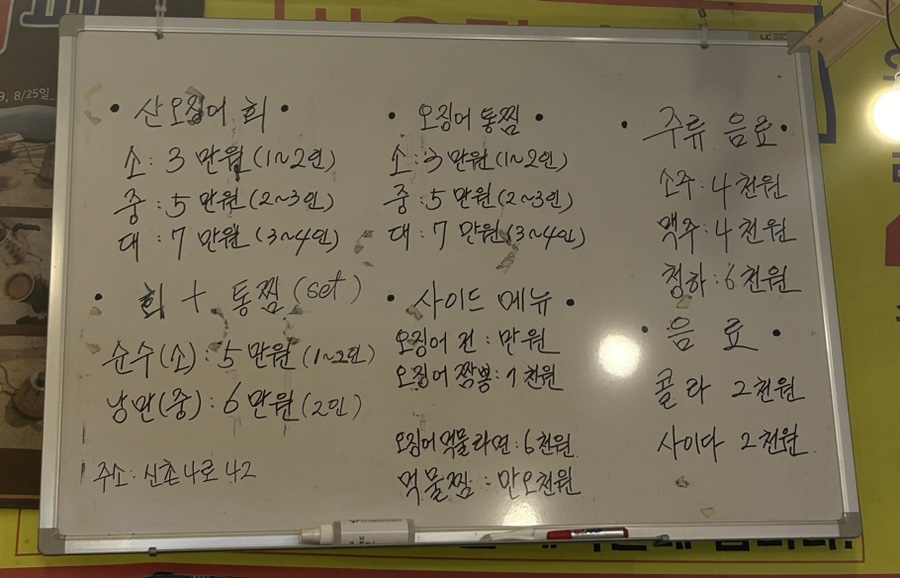 9, 8/25일
• 산오징어 회 •
소 : 3 만원 (1~2인)
중 : 5 만원 (2~3인)
대 : 7 만원 (3~4인)
• 회 + 통찜 (set)
순수(소) : 5 만원 (1~2인)
낭만(중) : 6 만원 (2인)
주소 : 신촌4로 42
• 오징어 통찜 •
소 : 3 만원 (1~2인)
중 : 5 만원 (2~3인)
대 : 7 만원 (3~4인)
• 사이드 메뉴 •
오징어 전 : 만원
오징어 짬뽕 : 7 천원
오징어 먹물 라면 : 6 천원
먹물찜 : 만오천원
• 주류 음료 •
소주 : 4 천원
맥주 : 4 천원
청하 : 6 천원
• 음료 •
콜라 2천원
사이다 2천원